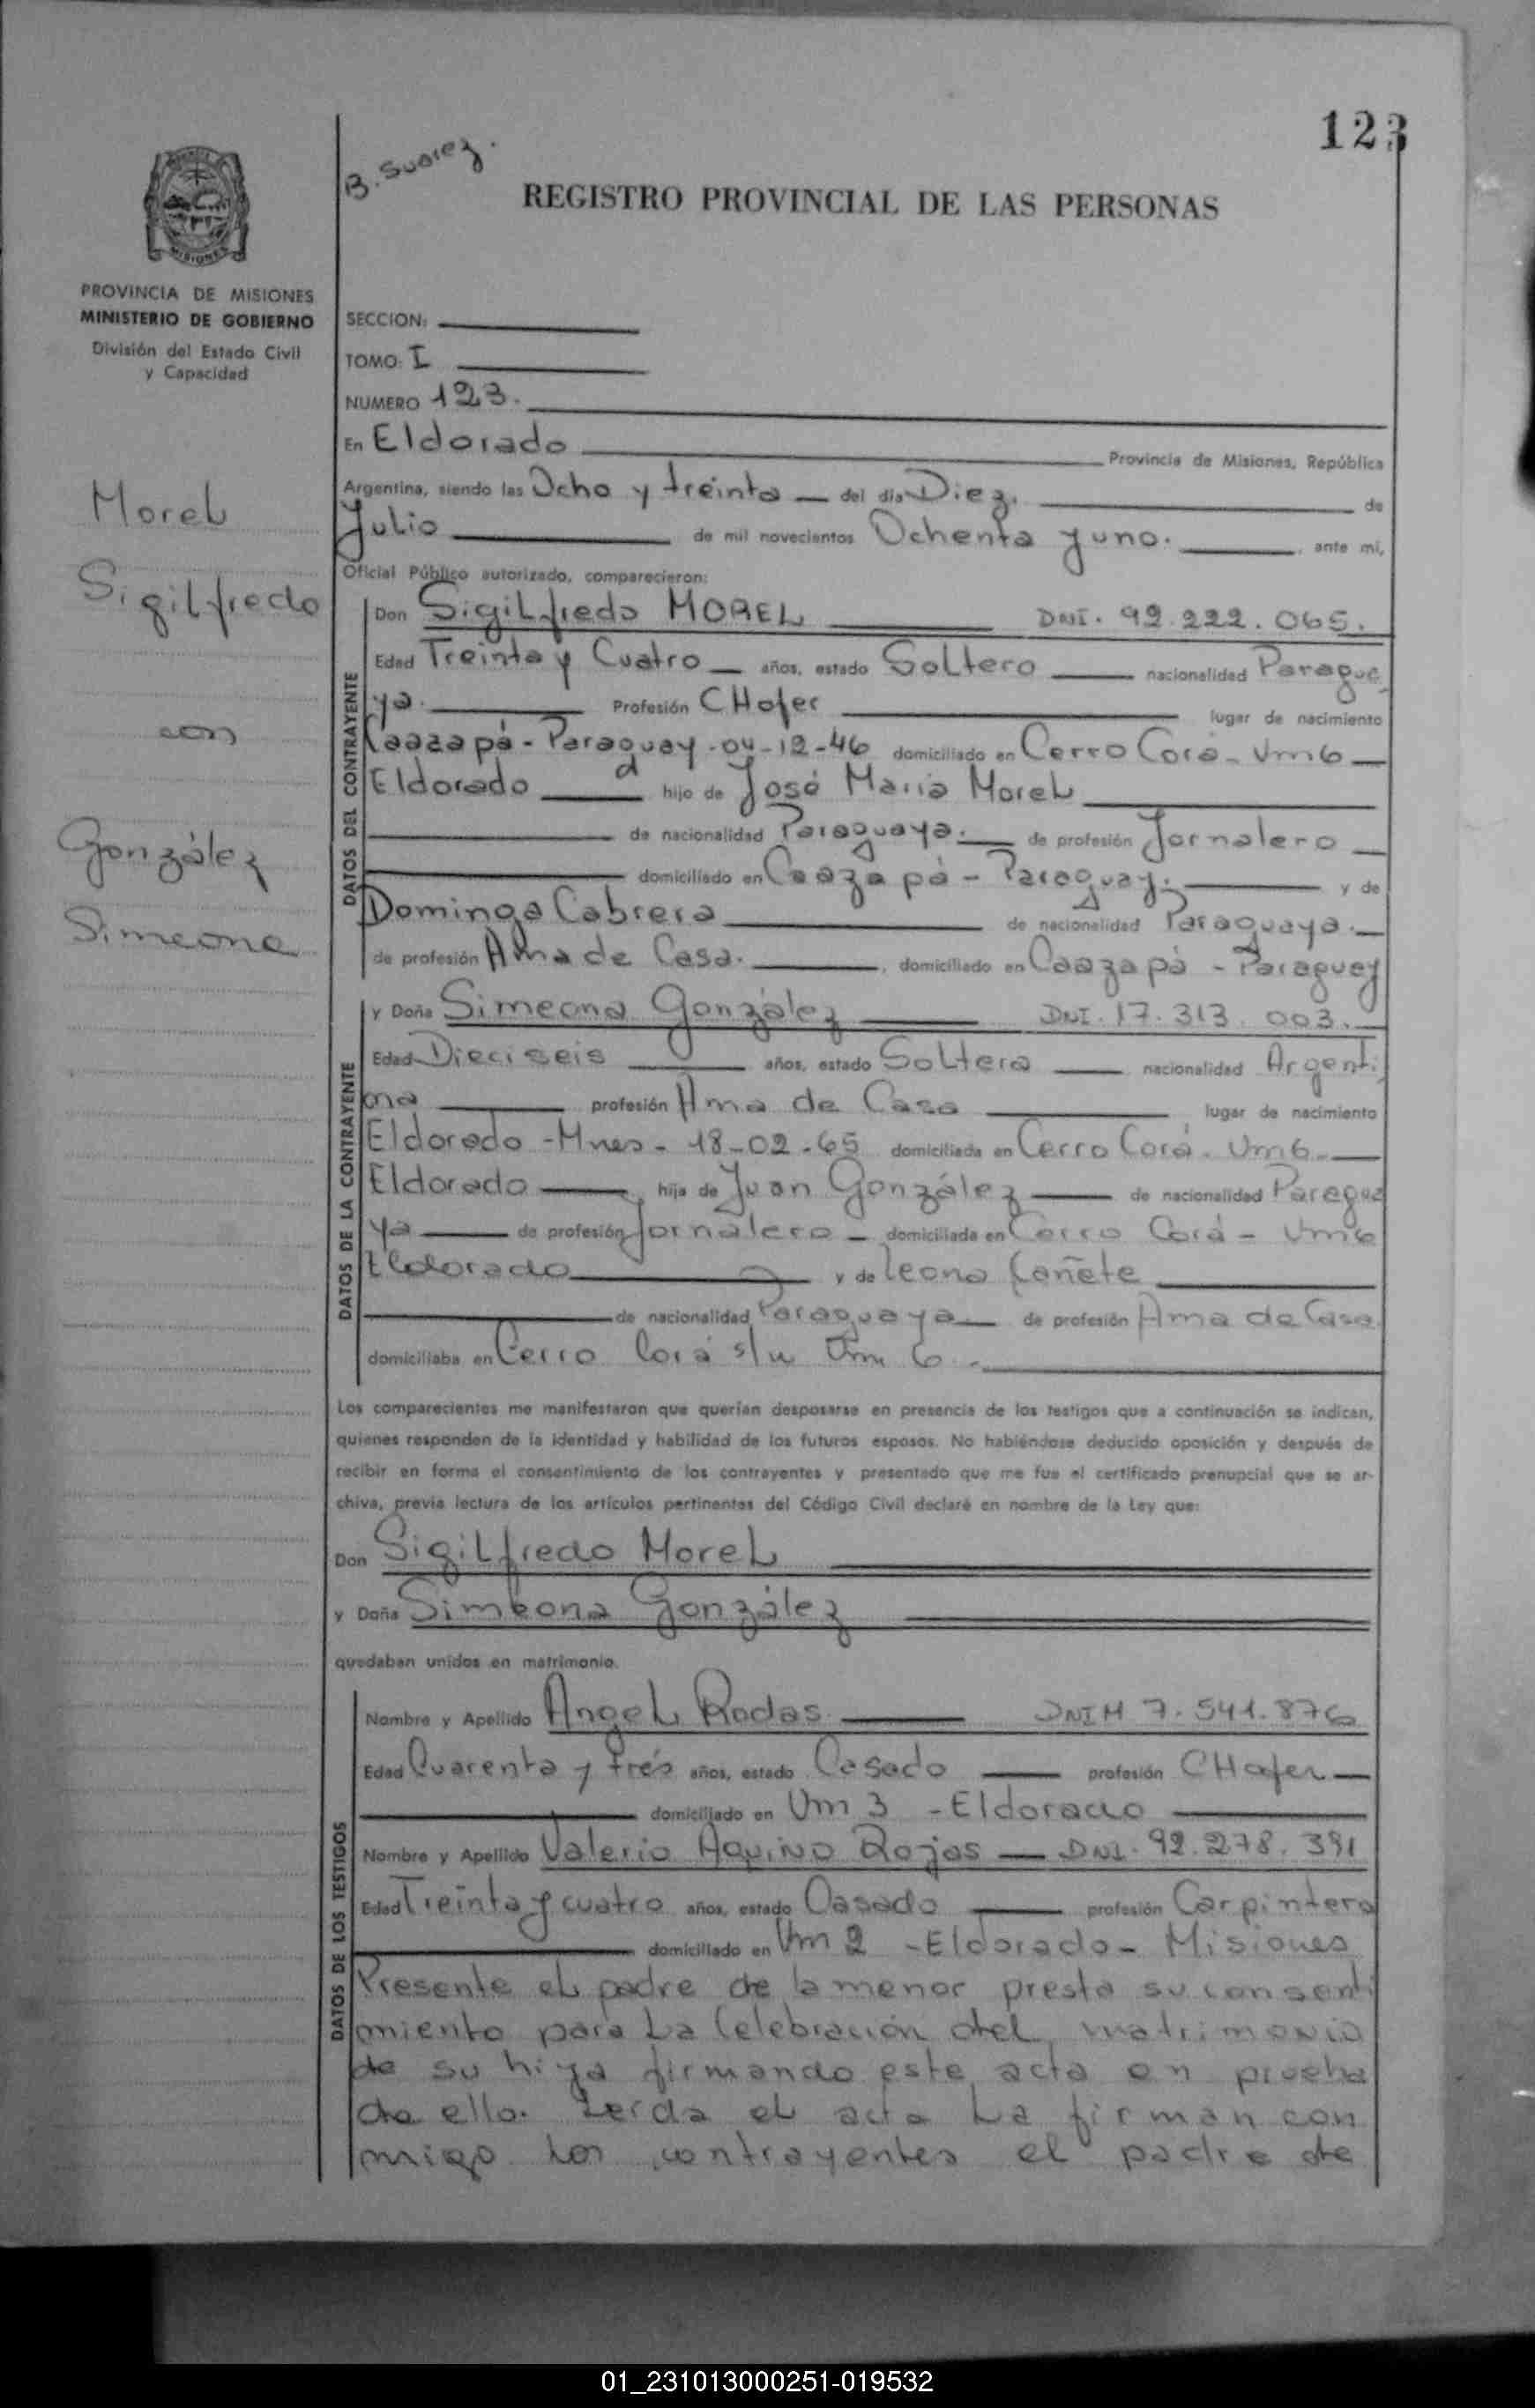 123
B. Suarez.
REGISTRO PROVINCIAL DE LAS PERSONAS
MISIONES
PROVINCIA DE MISIONES
MINISTERIO DE GOBIERNO
División del Estado Civil
y Capacidad
Morel
Sigilfredo
con
González
Simeona
SECCION:
TOMO: I
NUMERO 123.
En Eldorado Provincia de Misiones, República
Argentina, siendo las Ocho y treinta del día Diez. de
Julio de mil novecientos Ochenta y uno. ante mí,
Oficial Público autorizado, comparecieron:
DATOS DEL CONTRAYENTE
Don Sigilfredo MOREL DNI. 92.222.065.
Edad Treinta y Cuatro años, estado Soltero nacionalidad Paragua
ya. Profesión CHofer lugar de nacimiento
Caazapá - Paraguay - 04-12-46 domiciliado en Cerro Corá - Vm6
Eldorado hijo de José María Morel
de nacionalidad Paraguaya. de profesión Jornalero
domiciliado en Caazapá - Paraguay. y de
Dominga Cabrera de nacionalidad Paraguaya.
de profesión Ama de Casa. domiciliado en Caazapá - Paraguay
DATOS DE LA CONTRAYENTE
y Doña Simeona González DNI. 17.313.003.
Edad Dieciseis años, estado Soltera nacionalidad Argenti
na profesión Ama de Casa lugar de nacimiento
Eldorado - Mnes - 18-02-65 domiciliada en Cerro Corá - Vm6
Eldorado hija de Juan González de nacionalidad Paragua
ya de profesión Jornalero domiciliada en Cerro Corá - Vm6
Eldorado y de Leona Cañete
de nacionalidad Paraguaya de profesión Ama de Casa
domiciliaba en Cerro Corá s/n Vm 6.
Los comparecientes me manifestaron que querían desposarse en presencia de los testigos que a continuación se indican,
quienes responden de la identidad y habilidad de los futuros esposos. No habiéndose deducido oposición y después de
recibir en forma el consentimiento de los contrayentes y presentado que me fue el certificado prenupcial que se ar-
chiva, previa lectura de los artículos pertinentes del Código Civil declaré en nombre de la Ley que:
Don Sigilfredo Morel
y Doña Simeona González
quedaban unidos en matrimonio.
DATOS DE LOS TESTIGOS
Nombre y Apellido Angel Rodas DNIM 7.541.876
Edad Cuarenta y tres años, estado Casado profesión CHofer
domiciliado en Vm 3 - Eldorado
Nombre y Apellido Valerio Aquino Rojas DNI. 92.278.391
Edad Treinta y cuatro años, estado Casado profesión Carpintero
domiciliado en Vm 2 - Eldorado - Misiones
Presente el padre de la menor presta su consenti
miento para la Celebración del matrimonio
de su hija firmando este acta en prueba
de ello. Leida el acta la firman con
migo los contrayentes el padre de
01_231013000251-019532